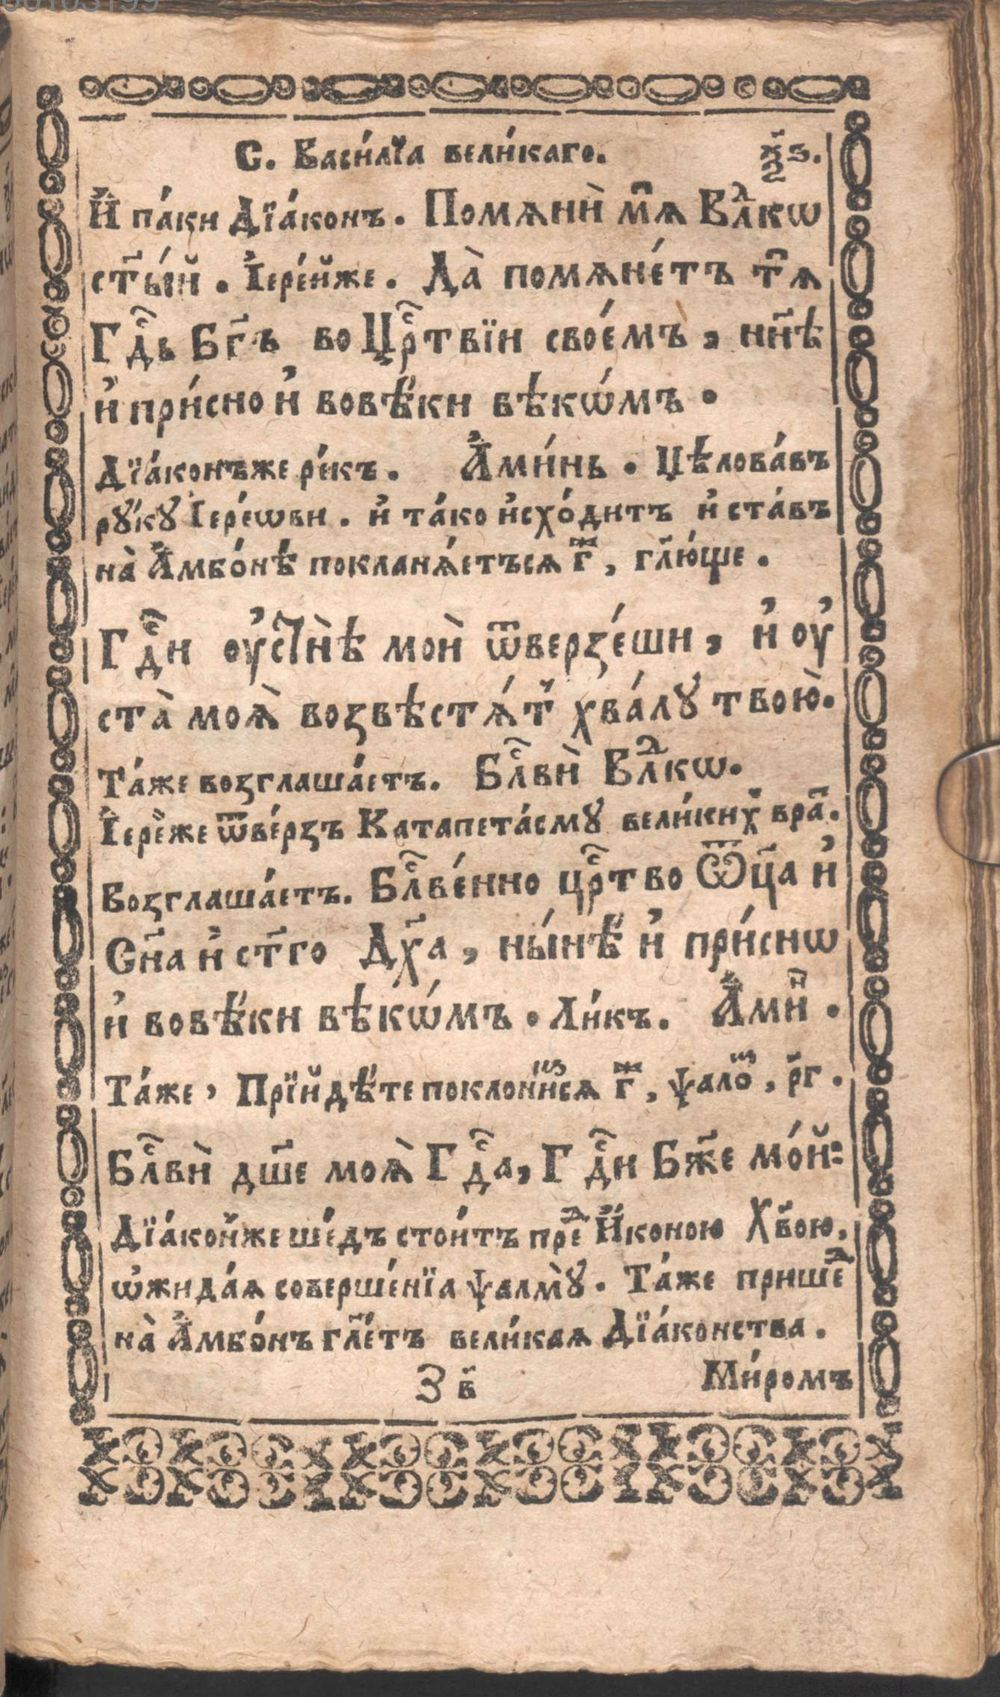 00103199
С. Васи́лїа вели́каго. ѯ҃з.
И҆ па́ки Дїа́конъ. Помѧнѝ мѧ̀ Влⷣкѡ
ст҃ы́й. І҆ере́йже. Да̀ помѧне́тъ тѧ̀
Гдⷭ҇ь Бг҃ъ во Црⷭ҇твїи свое́мъ, нн҃ѣ
и҆ при́сно и҆ вовѣ́ки вѣкѡ́мъ.
Дїа́конъже ре́къ. А҆ми́нь. Цѣлова́въ
рꙋ́кꙋ І҆ере́ѡви. и҆ та́ко и҆схо́дитъ и҆ ста́въ
на̀ А҆мбо́нѣ покланѧ́етъсѧ г҃ⷤ, гл҃ю́ще.
Гдⷭ҇и оу҆стнѣ̀ моѝ ѿверзе́ши, и҆ оу҆
ста̀ моѧ̀ возвѣстѧ́тъ хва́лꙋ твою̀.
Та́же возглаша́етъ. Блⷭ҇вѝ Влⷣкѡ.
І҆ере́же ѿве́рзъ Катапета́смꙋ вели́кихъ вра́тъ.
Возглаша́етъ. Блⷭ҇ве́нно црⷭ҇тво Ѿц҃а и҆
Сн҃а и҆ ст҃го Дх҃а, ны́нѣ и҆ при́снѡ
и҆ вовѣ́ки вѣкѡ́мъ. Ли́къ. А҆миⷩ҇.
Та́же, Прїйдѣ́те поклони́мсѧ г҃ⷤ, ѱалоⷨ, р҃г.
Блⷭ҇вѝ дш҃е моѧ̀ Гдⷭ҇а, Гдⷭ҇и Бж҃е мо́й:
Дїа́кон̾же ше́дъ стои́тъ преⷣ И҆́коною Хв҃ою,
ѡ҆жида́ѧ соверше́нїа ѱалмꙋ̀. Та́же прише́ⷣ
на̀ А҆мбо́нъ гл҃етъ вели́каѧ Дїа́конства.
З в҃ Ми́ромъ